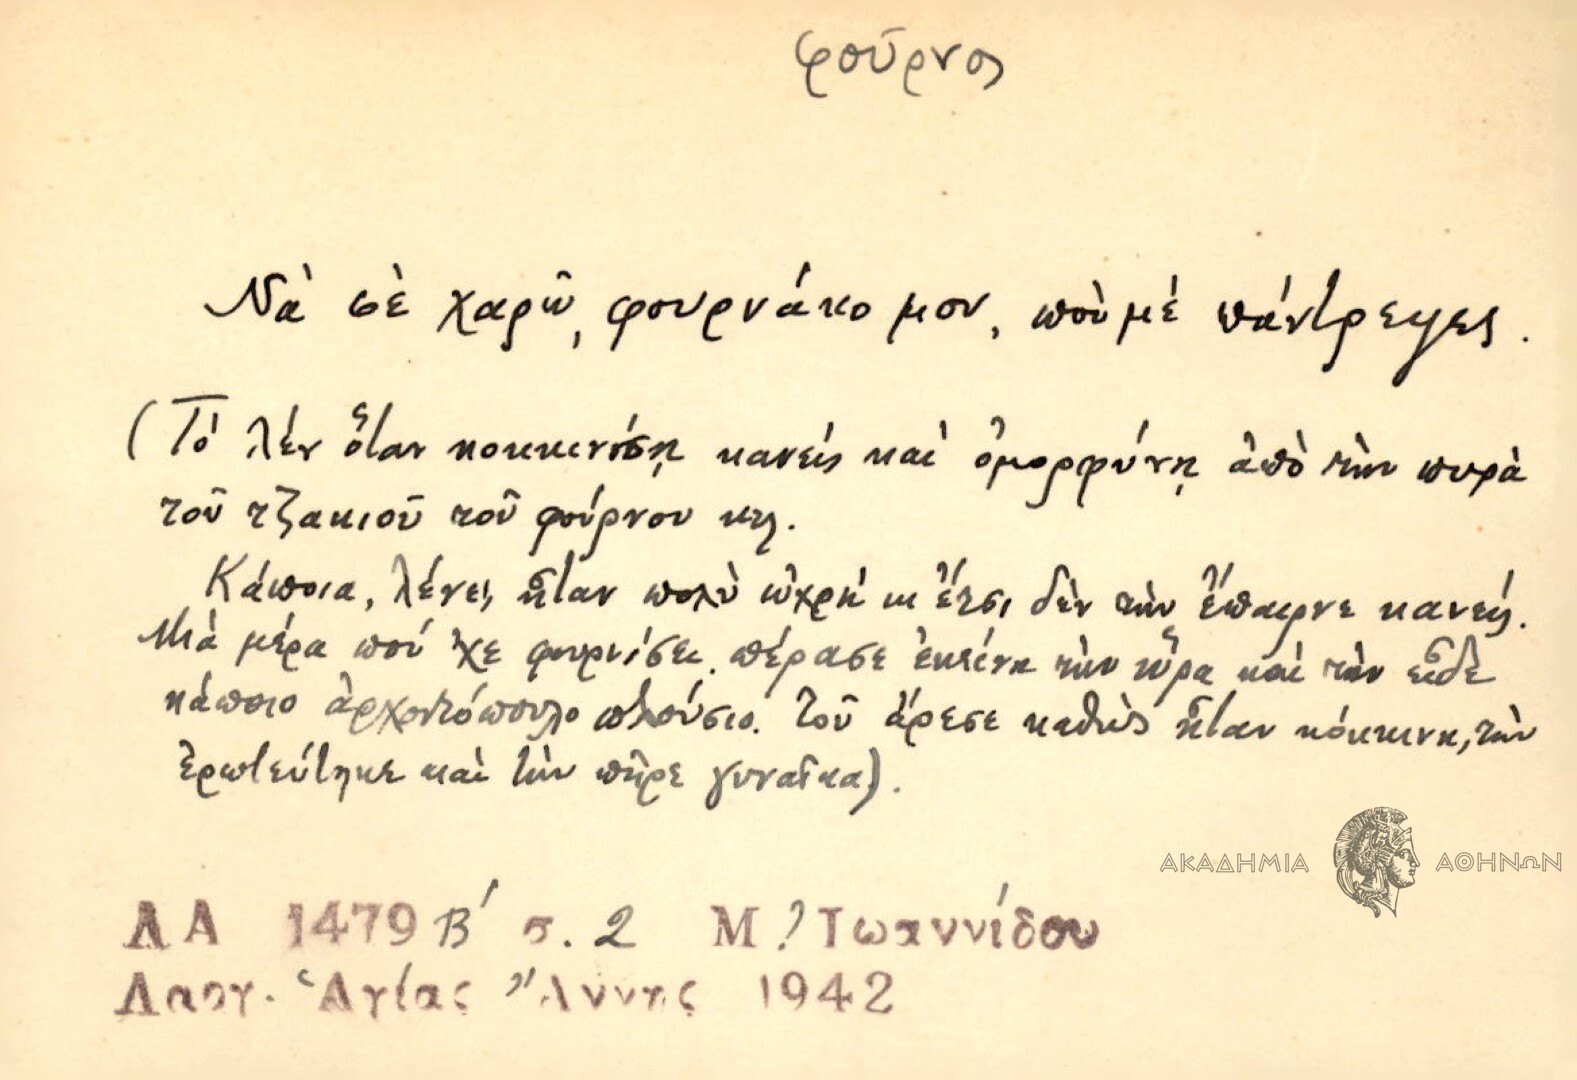 φοῦρνος
Νὰ σὲ χαρῶ, φουρνάκο μου, ποὺ μὲ πάντρεψες.
(Τὸ λέν ὅταν κοκκινίσῃ κανείς καὶ ὀμορφύνῃ ἀπὸ τὴν πυρὰ
τοῦ τζακιοῦ τοῦ φούρνου κλ.
Κάποια, λένε, ἦταν πολὺ ὠχρή κι ἔτσι δὲν τὴν ἔπαιρνε κανείς.
Μιὰ μέρα πού χε φουρνίσει. πέρασε ἐκείνη τὴν ὥρα καὶ τὴν εἶδε
κάποιο ἀρχοντόπουλο πλούσιο. Τοῦ ἄρεσε καθὼς ἦταν κόκκινη, τὴν
ἐρωτεύτηκε καὶ τὴν πῆρε γυναῖκα).
ΑΚΑΔΗΜΙΑ ΑΘΗΝΩΝ
ΛΑ 1479 Β΄ σ. 2 Μ. Ἰωαννίδου
Λαογ. Ἁγίας Ἄννης 1942